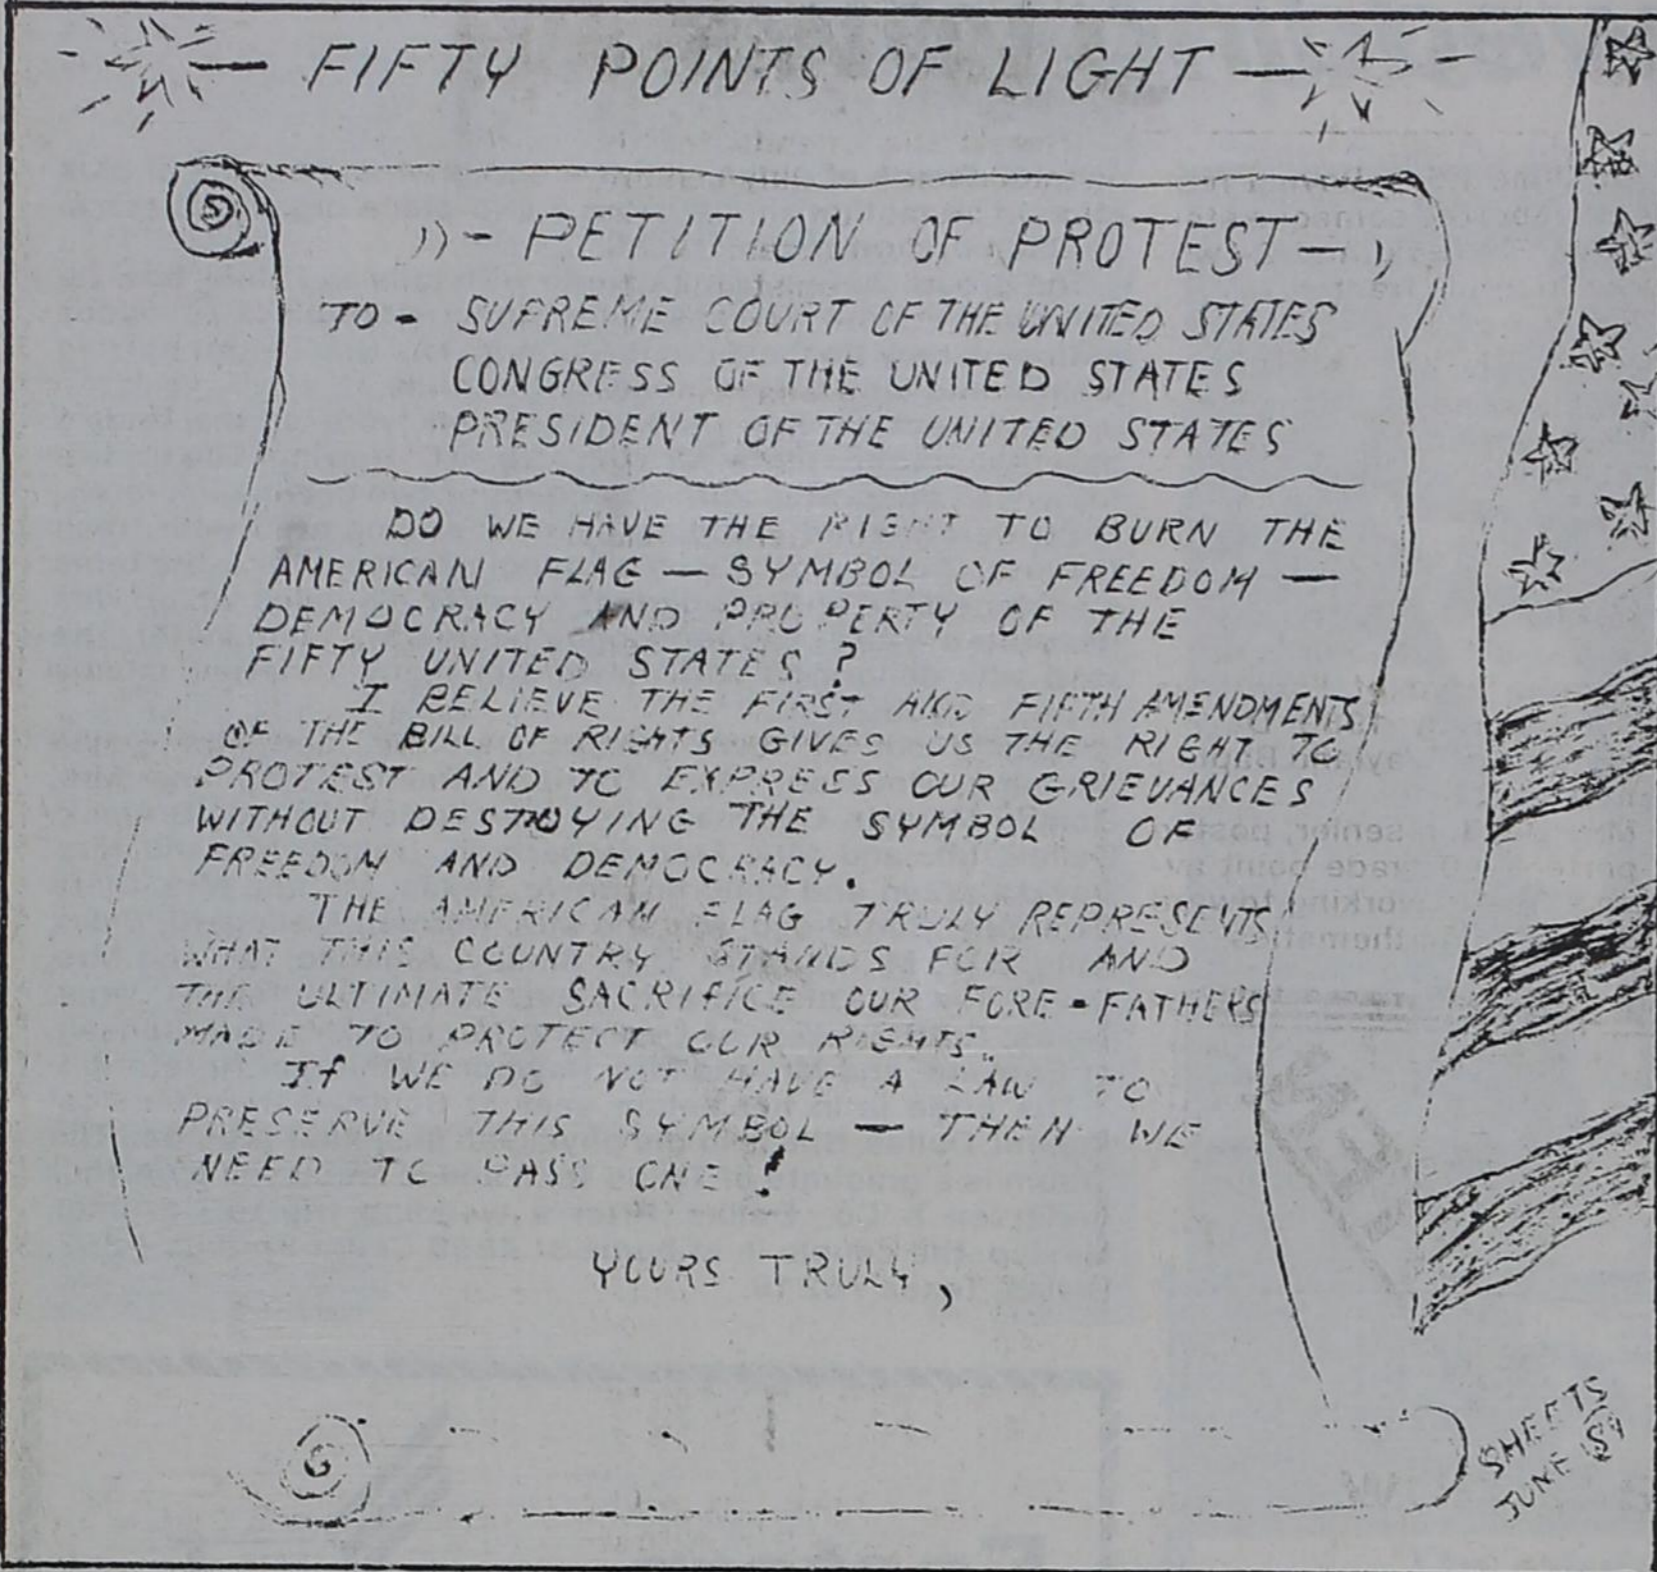 FIFTY POINTS OF LIGHT
PETITION OF PROTEST
TO - SUPREME COURT OF THE UNITED STATES
CONGRESS OF THE UNITED STATES
PRESIDENT OF THE UNITED STATES
DO WE HAVE THE RIGHT TO BURN THE
AMERICAN FLAG — SYMBOL OF FREEDOM —
DEMOCRACY AND PROPERTY OF THE
FIFTY UNITED STATES?
I BELIEVE THE FIRST AND FIFTH AMENDMENTS
OF THE BILL OF RIGHTS GIVES US THE RIGHT TO
PROTEST AND TO EXPRESS OUR GRIEVANCES
WITHOUT DESTROYING THE SYMBOL OF
FREEDOM AND DEMOCRACY.
THE AMERICAN FLAG TRULY REPRESENTS
WHAT THIS COUNTRY STANDS FOR AND
THE ULTIMATE SACRIFICE OUR FORE-FATHERS
MADE TO PROTECT OUR RIGHTS.
If WE DO NOT HAVE A LAW TO
PRESERVE THIS SYMBOL — THEN WE
NEED TO PASS ONE!
YOURS TRULY,
SHEETS
JUNE